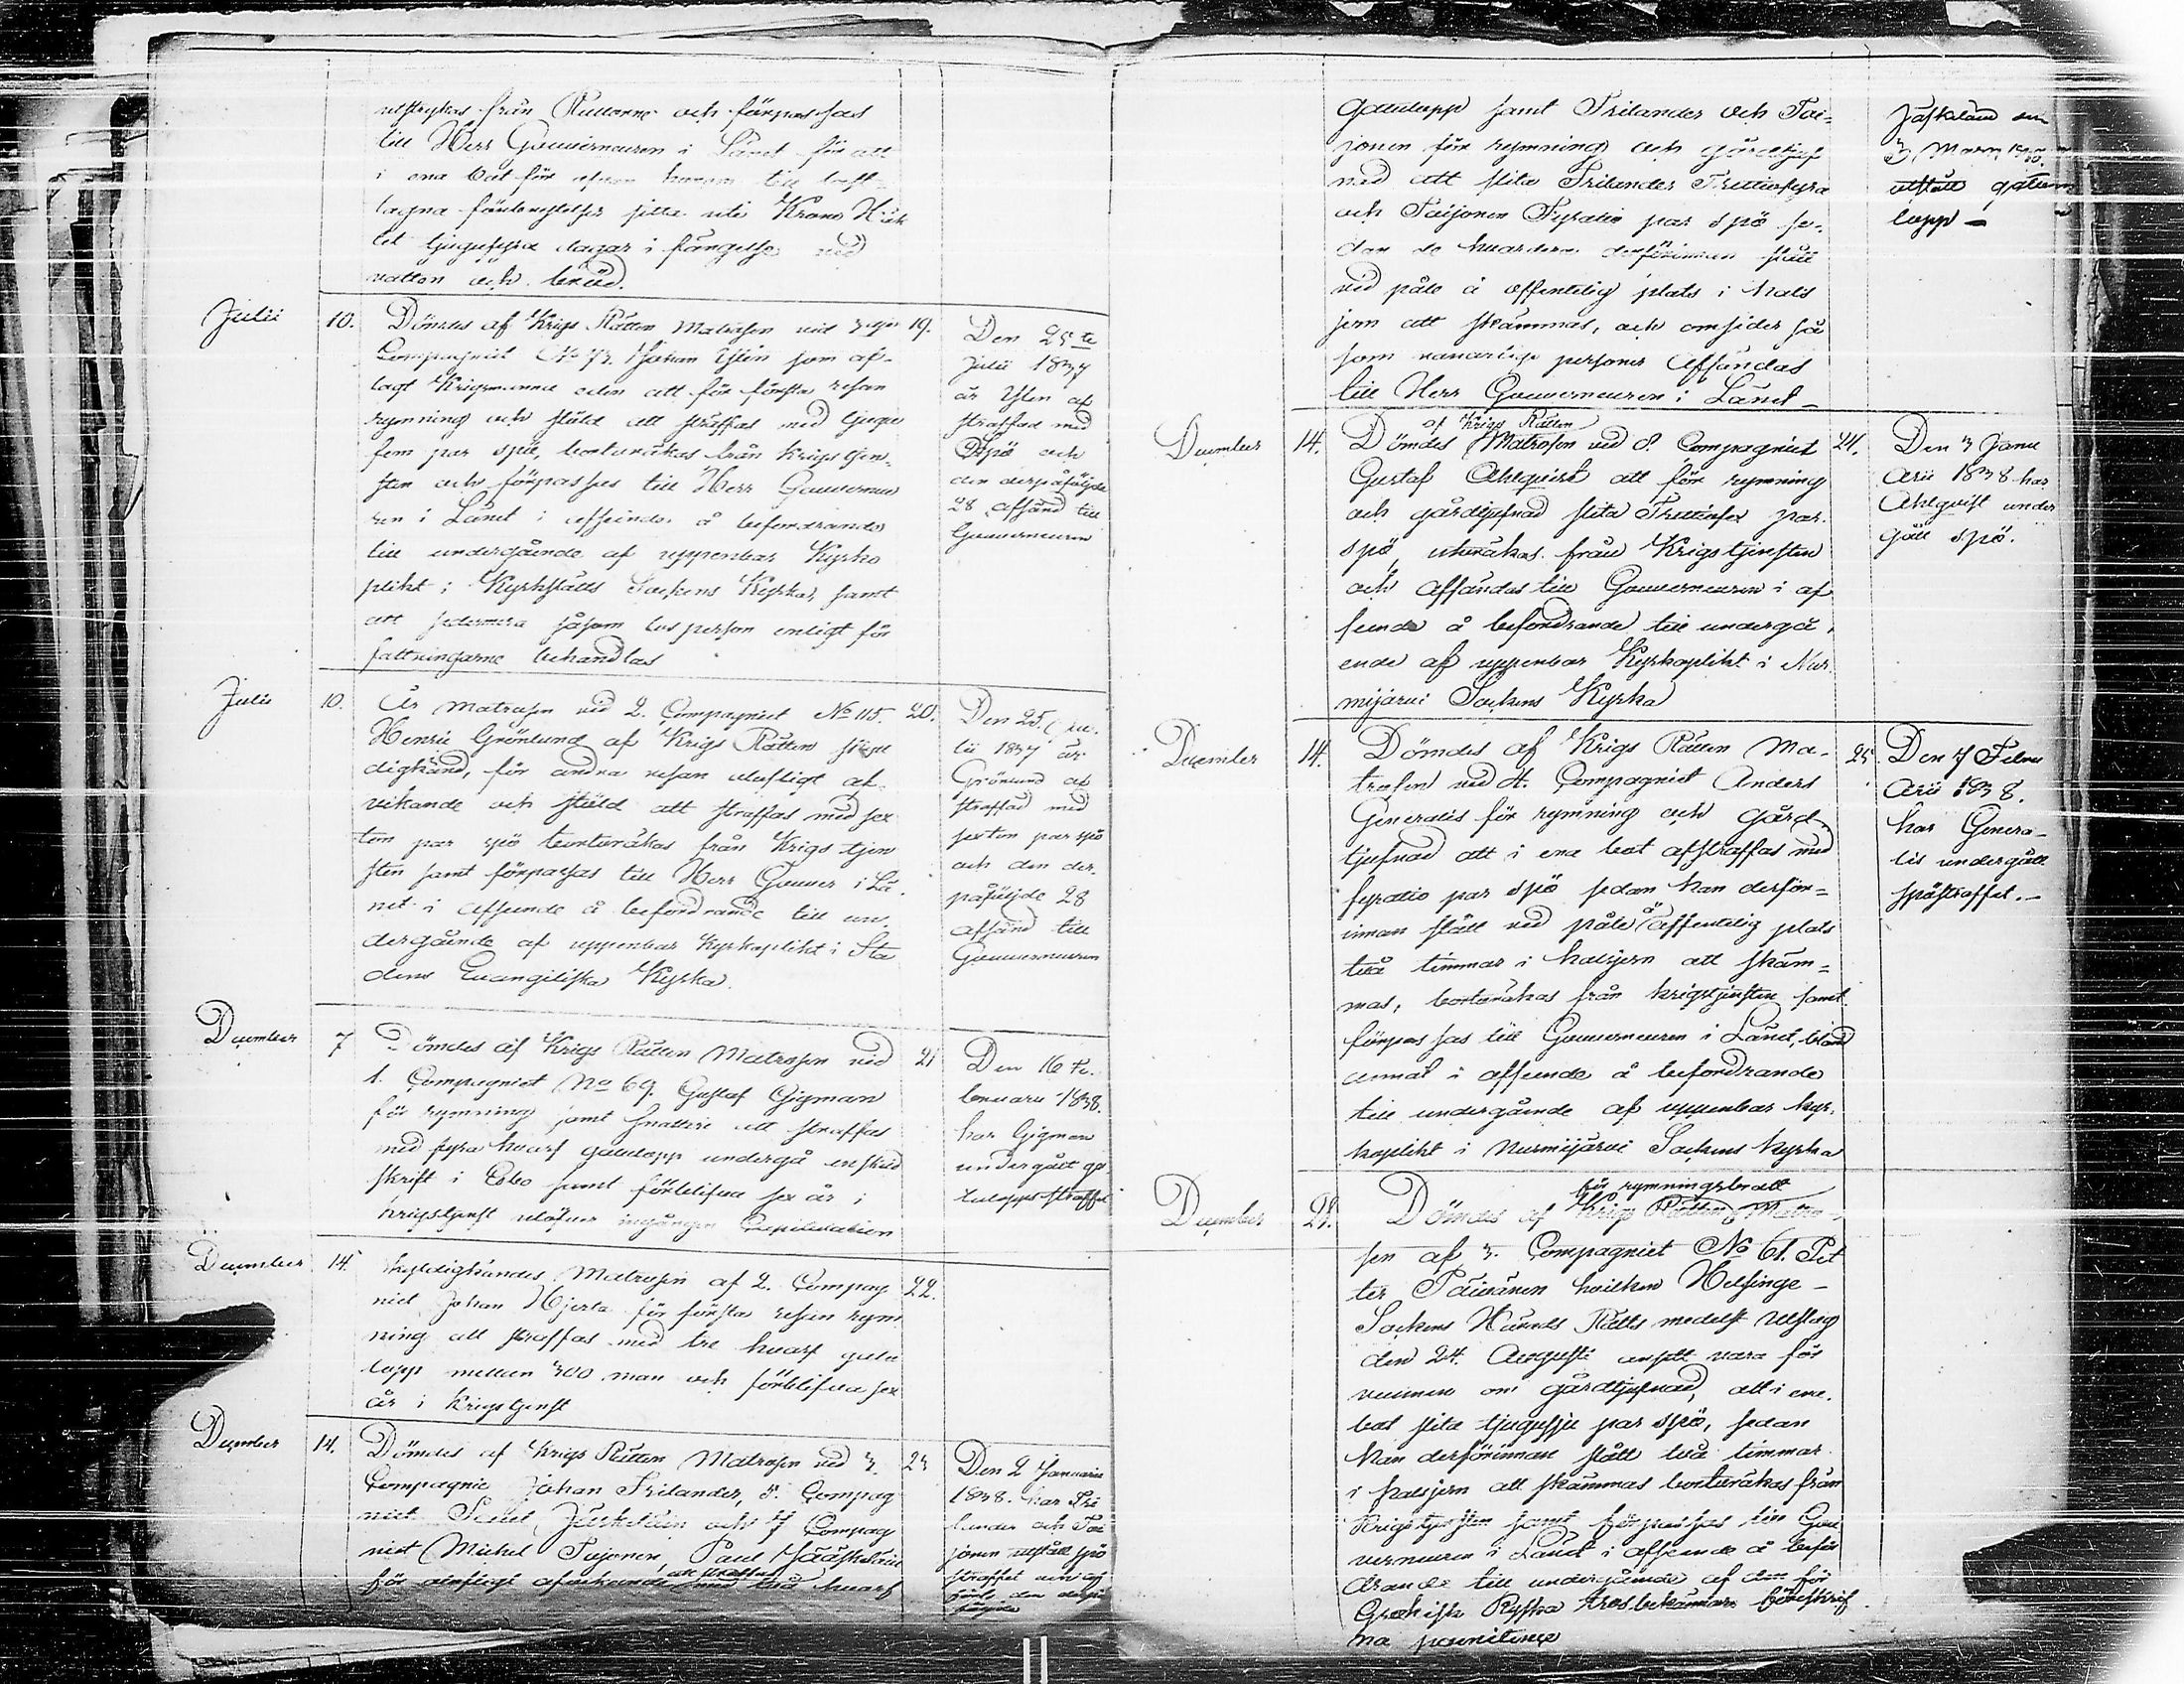 utstrykas från Rullorne och förpassas
till Herr Gouverneuren i Länet för att
i ena bot för
tagna förbrytelser sitta uti Krono Häk
tet tjugufyra dagar i fängelse vid
vatten och bröd.
Julii 10. Dömdes af Krigs Rätten Matrosen vid 3dje 19.
Compagniet No 73. Johan Ylen som af-
lagt Krigsmanna eden att för första resan
rymning och stöld att straffas med tjugu
fem par spö, bortvräkas från Krigstjen-
sten och förpassas till Herr Gouverneu
ren i Länet i afseende å befordrande
till undergående af uppenbar Kyrko
plikt i Kyrkslätts Sockens Kyrka, samt
att sedermera såsom lös person enligt för
fattningarne behandlas
Den 25te
Julii 1837
är Ylen af
straffad med
Spö och
den derpåföljde
28 afsänd till
Gouverneuren
Julii 10. Är Matrosen vid 2. Compagniet No 115. 20.
Henric Grönlund af Krigs Rätten skyl
digkänd, för andra resan olofligt af-
vikande och stöld att straffas med sex
ton par spö bortvräkas från Krigs tjen
sten samt förpassas till Herr Gouver i Lä
net i afseende å befordrande till un
dergående af uppenbar Kyrkoplikt i Sta
dens Evangeliska Kyrka.
Den 25. Ju-
lii 1837 är
Grönlund af
straffad med
sexton par spö
och den der-
påföljde 28
afsänd till
Gouverneuren
December 7 Dömdes af Krigs Rätten Matrosen vid 21
1. Compagniet No 69. Gustaf Gigman
för rymning samt snatteri att straffas
med fyra hvarf gatulopp undergå enskild
skrift i Esbo samt förblifva sex år i
krigstjenst utöfver ingången Capitulation
Den 16 Fe-
bruarii 1838.
har Gigman
undergått ga-
tuloppsstraffet
December 14. Skyldigkändes Matrosen af 2. Compag 22.
niet Johan Hjerta för första resan rym
ning att straffas med tre hvarf gatu
lopp mellan 300 man och förblifva sex
år i Krigstjenst
December 14. Dömdes af Krigs Rätten Matrosen vid 3. 23
Compagnie Johan Frilander, 5. Compag
niet Jääskeläin och 7 Compag
niet Michel Toijonen, Paul Jääskeläin
att straffas
för olofligt afvikande med två hvarf
Den 2 Januarii
1838. har Fri
lander och Toi
jonen utstått spö
straffet och af
sänds den derpå
följde
Gatulopp samt Frilander och Toi-
jonen för rymning och gårdstjuf
nad att slita Frilander Trettiofyra
och Toijonen Fyratio par spö se-
dan de hvardera derförinnan stått
vid påle å offentelig plats i hals
jern att skämmas, och omsider så
som vanartige personer Affändas
till Herr Gouverneuren i Länet
Jäskeläin den
3 Mars 1838.
utstått gatu
lopp
December 14. af Krigs Rätten
Dömdes Matrosen vid 8. Compagniet 24.
Gustaf Ahlqvist att för rymning
och gårdtjufnad slita Trettiosex par
spö, utvräkas från Krigstjensten
och affändas till Gouverneuren i af
seende å befordrande till undergå-
ende af uppenbar Kyrkoplikt i Nur
mijärvi Sockens Kyrka
Den 3 Janu
arii 1838 har
Ahlqvist under
gått spö.
December 14. Dömdes af Krigs Rätten Ma- 25.
trosen vid 4. Compagniet Anders
Generalis för rymning och gård-
tjufnad att i ena bot afstraffas med
fyratio par spö sedan han derför-
innan stått vid påle å offentelig plats
två timmar i halsjern att skäm-
mas, bortvräkas från krigstjensten samt
förpassas till Gouverneuren i Länet, bland
annat i afseende å befordrande
till undergående af uppenbar kyr-
koplikt i Nurmijärvi Sockens kyrka
Den 7 Febru
arii 1838.
har Genera-
lis undergått
spöstraffet.
December 28. för rymningsbrott
Dömdes af Krigs Rätten Matro-
sen af 3. Compagniet No 61. Pet
ter Päivänen hvilken Helsinge
Sockens Härads Rätts medelst Utslag
den 24. Augusti ansett vara för
vunnen om gårdtjufnad, att i ena
bot slita tjugusju par spö, sedan
han derförinnan stått två timmar
i halsjern att skämmas bortvräkas från
Krigstjensten samt förpassas till Gou
verneuren i Länet i afseende å befor
drande till undergående af den för
Grekisk Ryska trosbekännare föreskrif
na poenitence